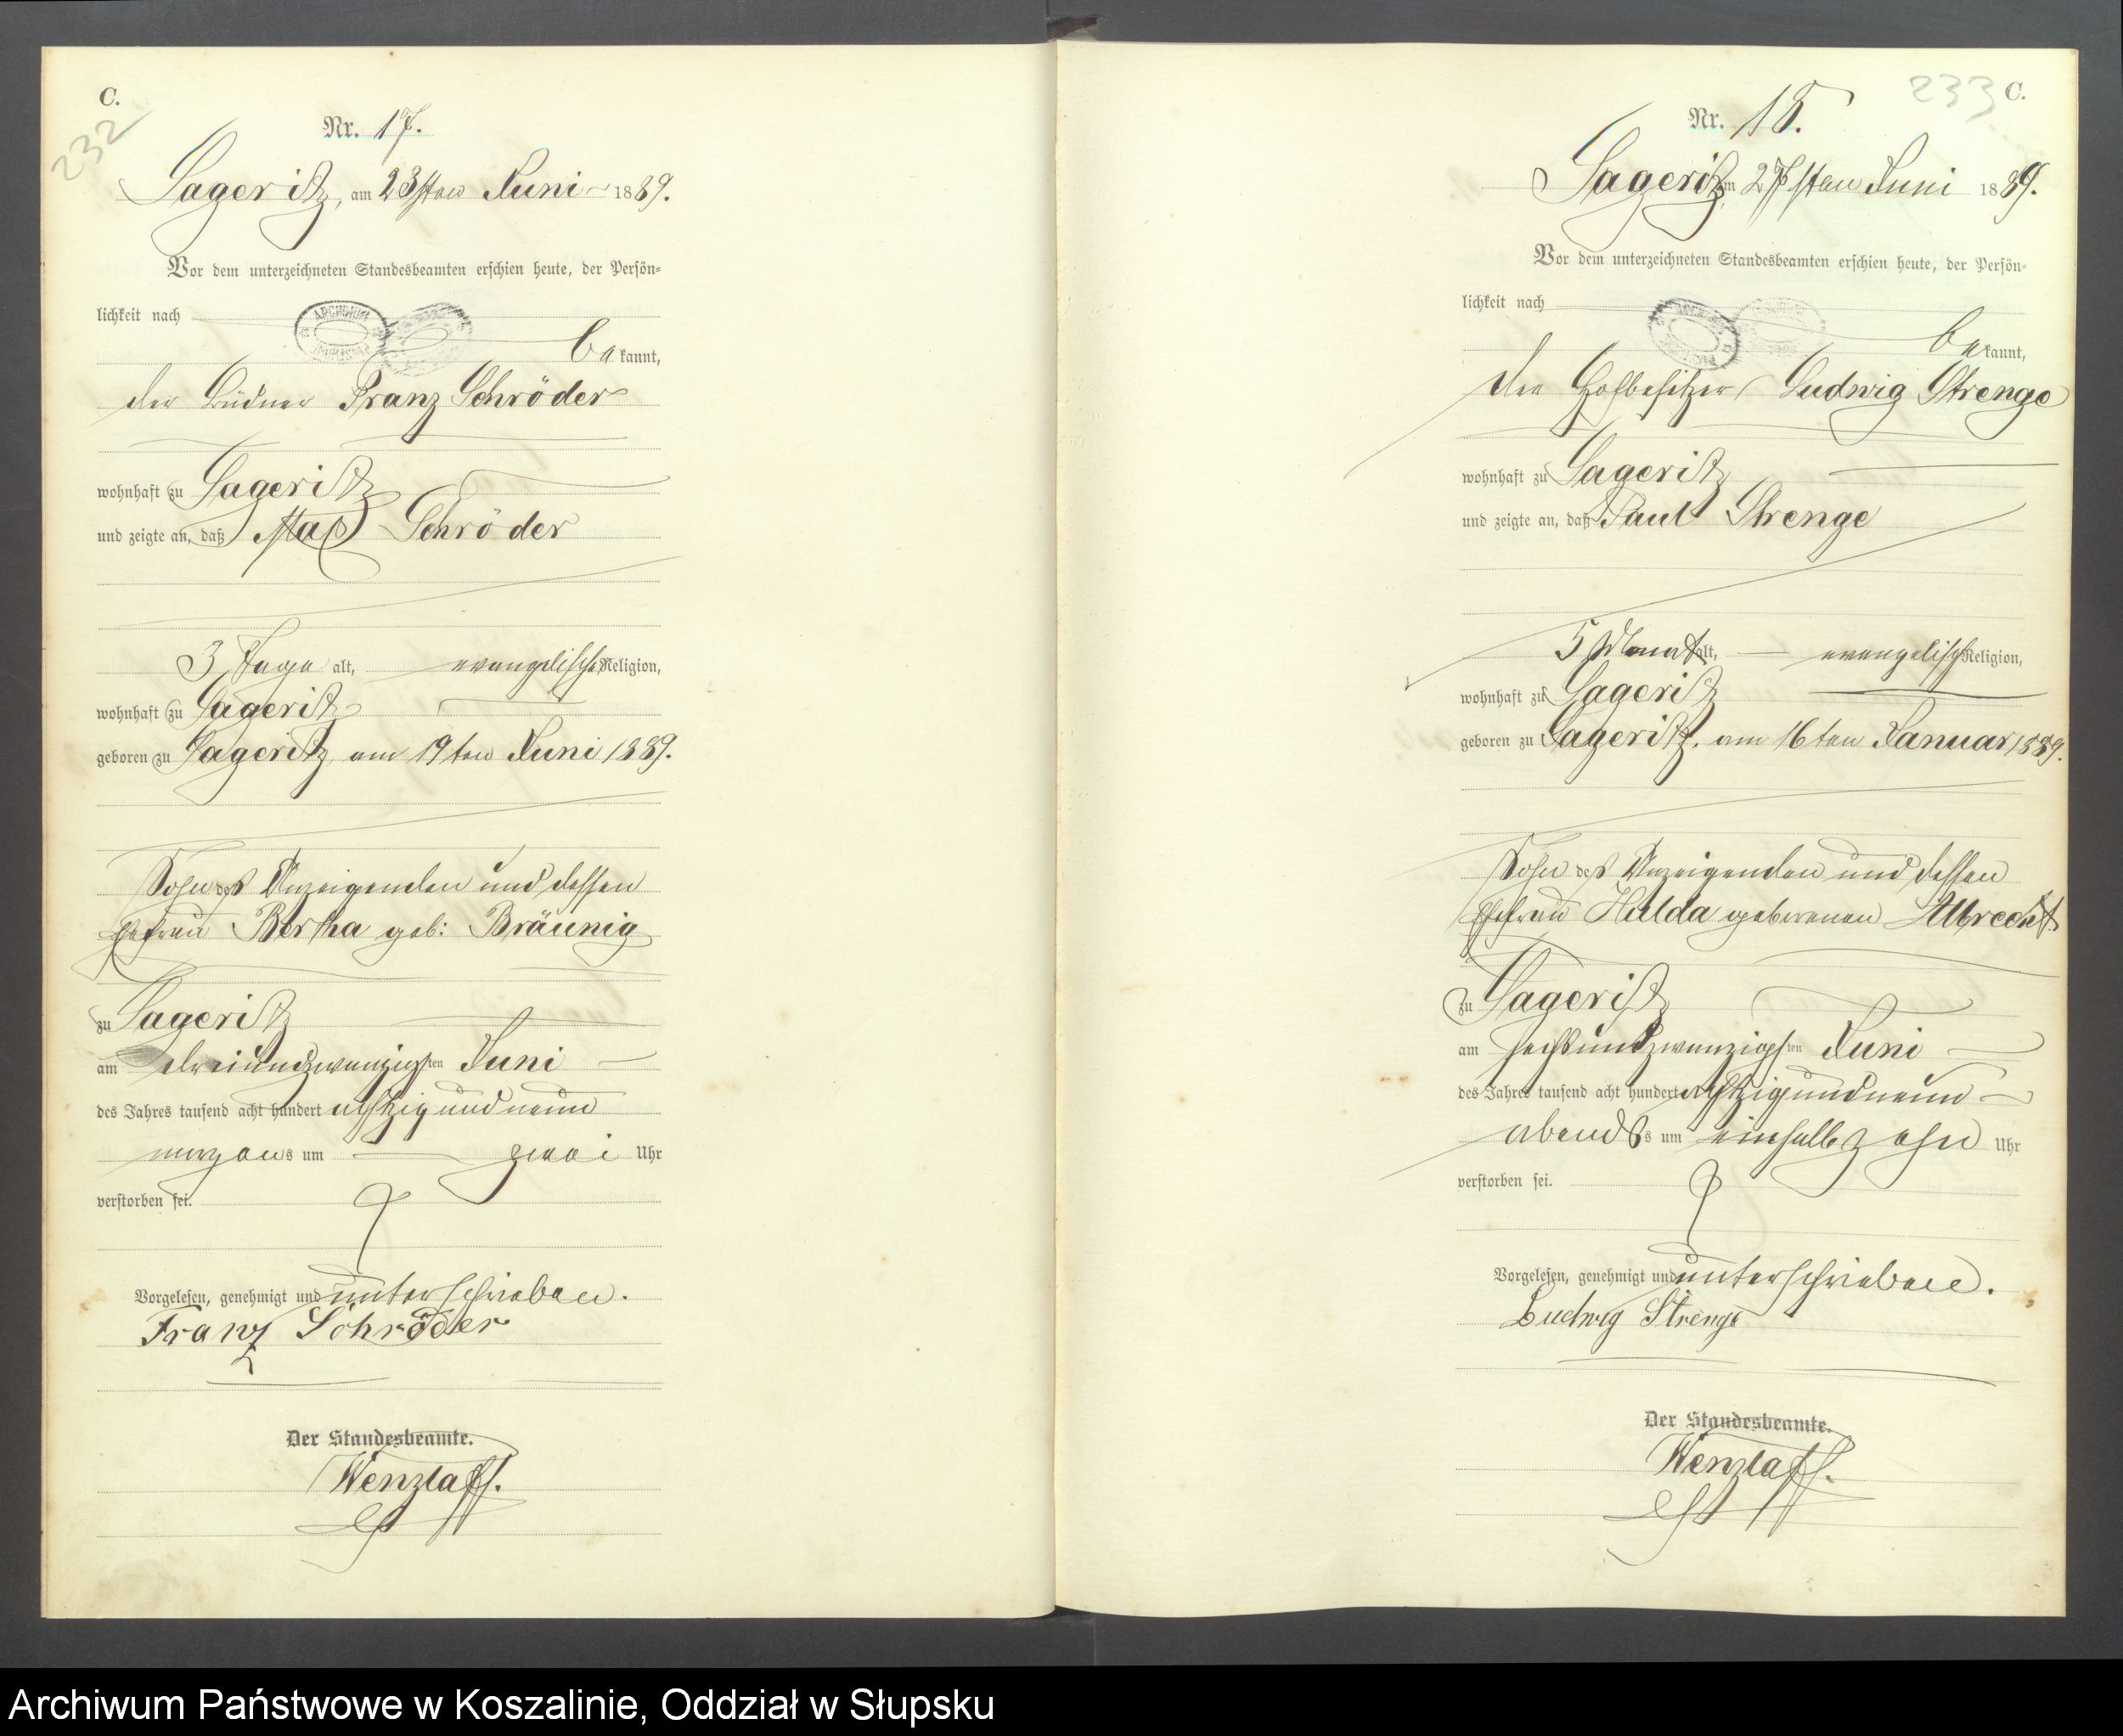 C.
232
Nr. 17.
Sageritz, am 23sten Juni 1889.
Vor dem unterzeichneten Standesbeamten erschien heute, der Persön-
lichkeit nach
bekannt,
der Büdner Franz Schröder
wohnhaft zu Sageritz
und zeigte an, daß Max Schröder
3 Tage alt, evangelischer Religion,
wohnhaft zu Sageritz
geboren zu Sageritz am 19ten Juni 1889.
Sohn des Anzeigenden und dessen
Ehefrau Bertha geb: Bräunig
zu Sageritz
am dreiundzwanzigsten Juni
des Jahres tausend acht hundert achtzig und neun
morgens um zwei Uhr
verstorben sei.
Vorgelesen, genehmigt und unterschrieben.
Franz Schröder
Der Standesbeamte.
Wenzlaff.
233
C.
Nr. 18.
Sageritz, am 27sten Juni 1889.
Vor dem unterzeichneten Standesbeamten erschien heute, der Persön-
lichkeit nach
bekannt,
der Hofbesitzer Ludwig Strenge
wohnhaft zu Sageritz
und zeigte an, daß Paul Strenge
5 Monat alt, evangelisch Religion,
wohnhaft zu Sageritz
geboren zu Sageritz. am 16ten Januar 1889.
Sohn des Anzeigenden und dessen
Ehefrau Hulda geborenen Albrecht.
zu Sageritz
am sechsundzwanzigsten Juni
des Jahres tausend acht hundert achtzig und neun
abends um einhalb zehn Uhr
verstorben sei.
Vorgelesen, genehmigt und unterschrieben.
Ludwig Strenge
Der Standesbeamte.
Wenzlaff.
Archiwum Państwowe w Koszalinie, Oddział w Słupsku